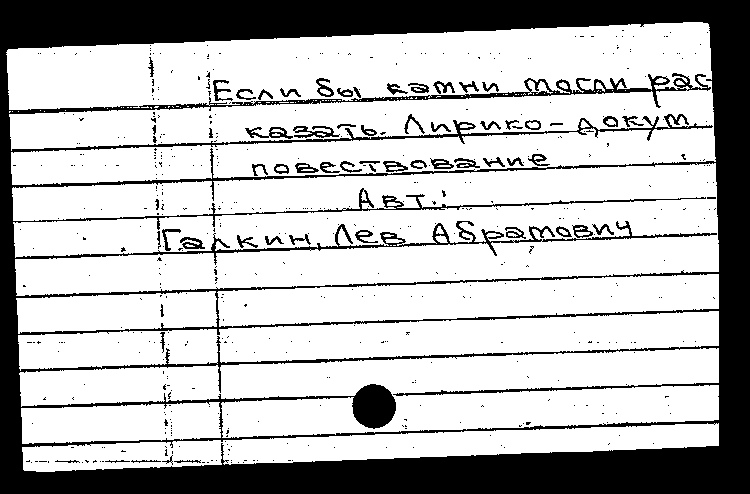 Если бы камни могли рас
казать. Лирико-докум.
повествование
Авт.:
Галкин, Лев Абрамович